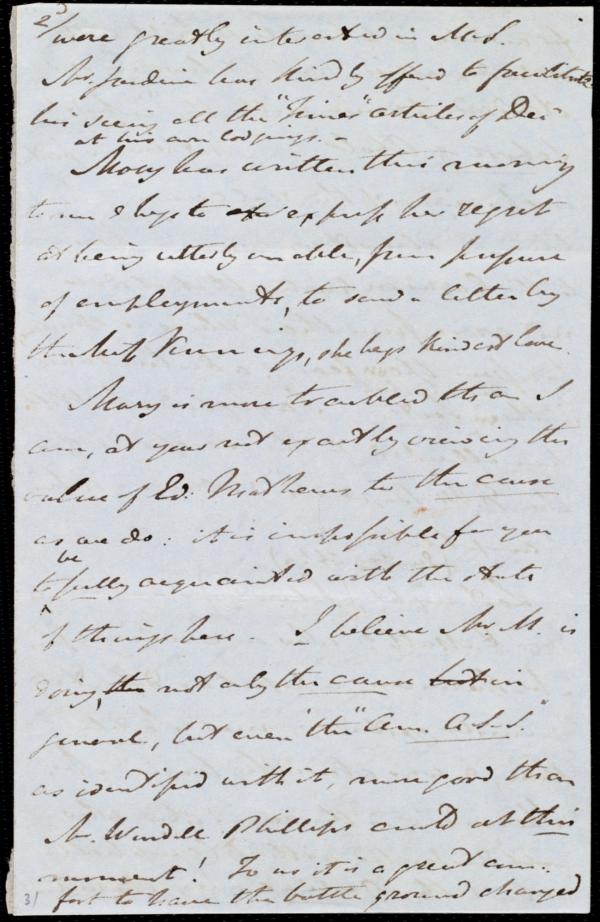 2d/
were greatly interested in M.S.
Mr Jardine has kindly offered to facilitate
his seeing all the "Times" articles of Dec
at his own lodgings. -
Mary has written this morning
to me & begs to express her regret
at being utterly unable, from pressure
of employments, to send a letter by
the Miss Vennings, she begs kindest love.
Mary is more troubled than I
am, at your not exactly viewing the
value of Ed: Mathews to the cause
as we do: it is impossible for you
to be fully acquainted with the state
of things here - I believe Mr M. is
doing, not only the cause in
general, but even "the "Am. A.S.S."
as identified with it, more good than
Mr Wendell Phillips could at this
moment! To us it is a great com-
fort to have the battle ground changed
31